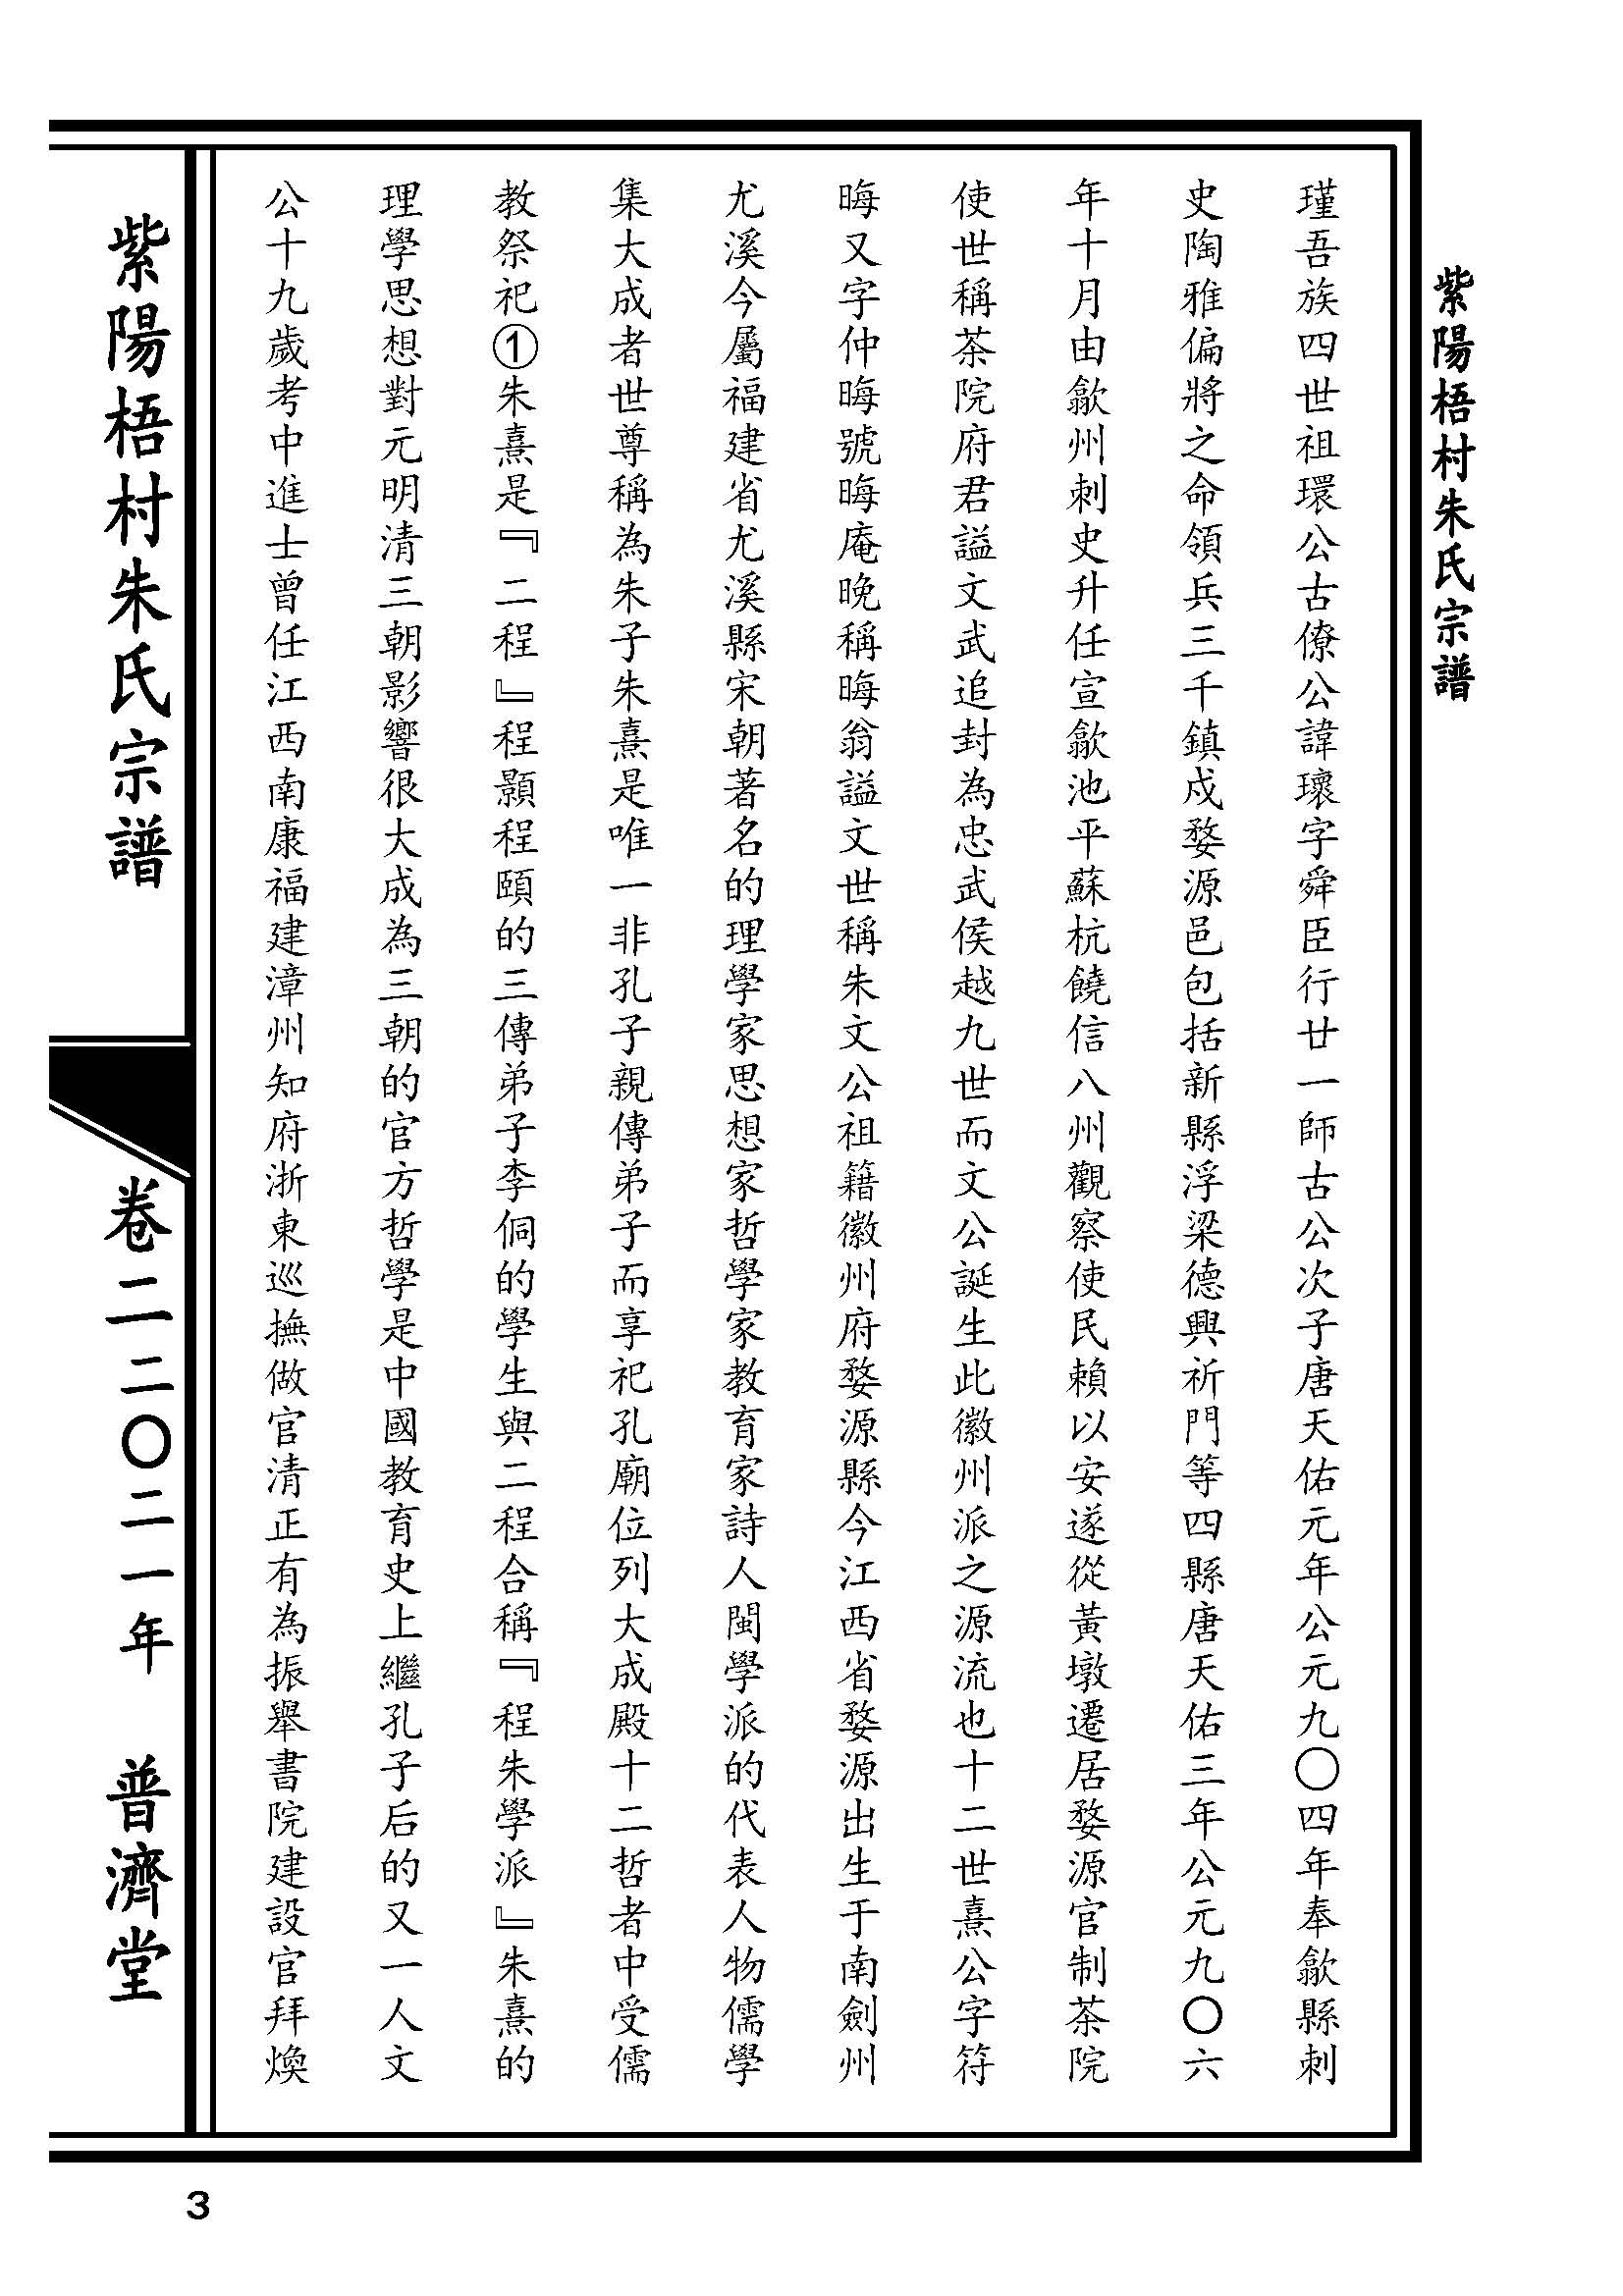 紫陽梧村朱氏宗譜
瑾吾族四世祖環公古僚公諱瓌字舜臣行廿一師古公次子唐天佑元年公元九〇四年奉歙縣刺
史陶雅偏將之命領兵三千鎮戍婺源邑包括新縣浮梁德興祈門等四縣唐天佑三年公元九〇六
年十月由歙州刺史升任宣歙池平蘇杭饒信八州觀察使民賴以安遂從黃墩遷居婺源官制茶院
使世稱茶院府君謚文武追封為忠武侯越九世而文公誕生此徽州派之源流也十二世熹公字符
晦又字仲晦號晦庵晚稱晦翁謚文世稱朱文公祖籍徽州府婺源縣今江西省婺源出生于南劍州
尤溪今屬福建省尤溪縣宋朝著名的理學家思想家哲學家教育家詩人閩學派的代表人物儒學
集大成者世尊稱為朱子朱熹是唯一非孔子親傳弟子而享祀孔廟位列大成殿十二哲者中受儒
教祭祀①朱熹是『二程』程顥程頤的三傳弟子李侗的學生與二程合稱『程朱學派』朱熹的
理學思想對元明清三朝影響很大成為三朝的官方哲學是中國教育史上繼孔子后的又一人文
公十九歲考中進士曾任江西南康福建漳州知府浙東巡撫做官清正有為振舉書院建設官拜煥
紫陽梧村朱氏宗譜 卷二 二〇二一年 普濟堂
3